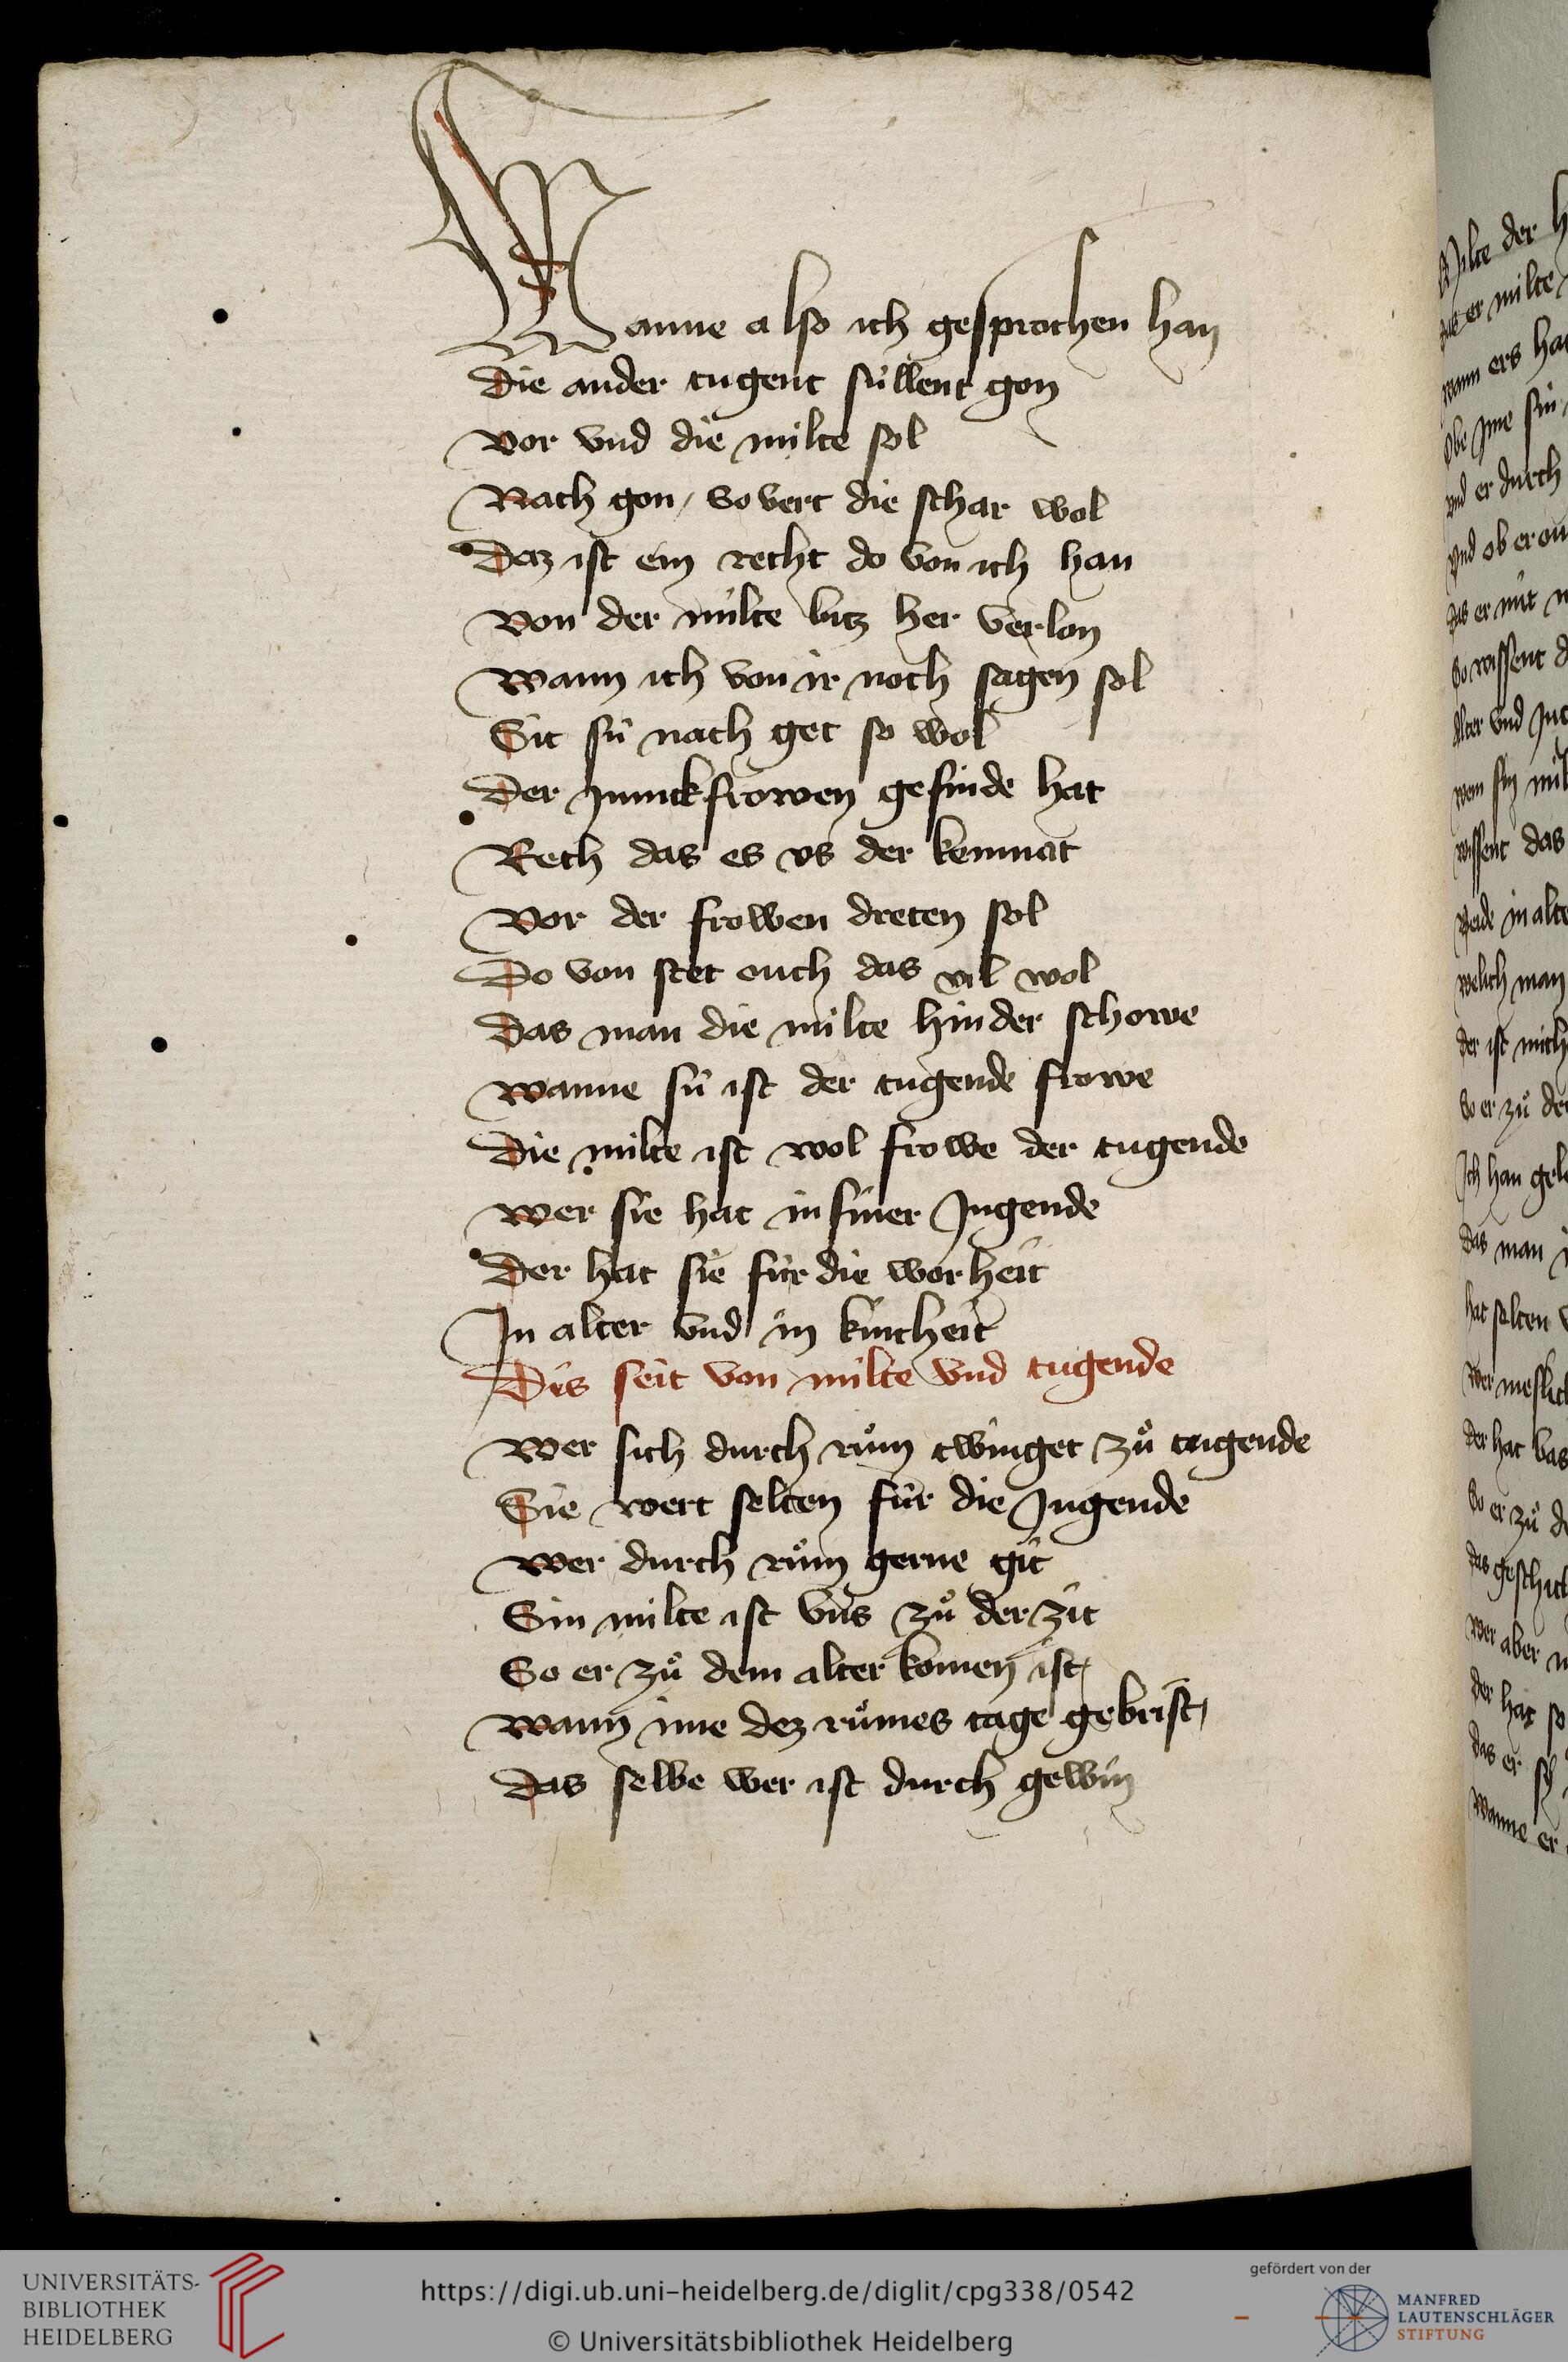 Wanne also ich gesprochen han
Die ander tugent süllent gon
Vor vnd die milte sol
Nach gon / So vert die schar wol
Daz ist ein recht do von ich han
Von der milte bitz her verlon
Wann ich von ir noch sagen sol
Sit sü nach get so wol
Der Junckfrowen gesinde hat
Rech das es vs der kemnat
Vor der frowen dreten sol
Do von stet ouch das vil wol
Das man die milte hinder schowe
Wanne sü ist der tugende frowe
Die milte ist wol frowe der tugende
Wer sie hat in siner Jugende
Der hat sie für die worheit
In alter vnd in kintheit
Dis seit von milte vnd tugende
Wer sich durch rům twinget zů tugende
Sie wert selten für die Jugende
Wer durch rům gerne git
Sin milte ist vns zů der zit
So er zů dem alter komen ist
Wann ime dez růmes tage gebrist
Das selbe wer ist durch gewin
Milte der
er milte
wann ers
Obe Ime sin
vnd er durch
Vnd ob er
das er nüt
So wissent
Alter vnd
wem sin
wissent das
Beide in
welich man
der ist
So er zů
Ich han
das man
hat selten
Wer
der hat bas
So er zů
das
Wer aber
der hat so
das er
Wanne er
UNIVERSITÄTS-
BIBLIOTHEK
HEIDELBERG
https://digi.ub.uni-heidelberg.de/diglit/cpg338/0542
© Universitätsbibliothek Heidelberg
gefördert von der
MANFRED
LAUTENSCHLÄGER
STIFTUNG